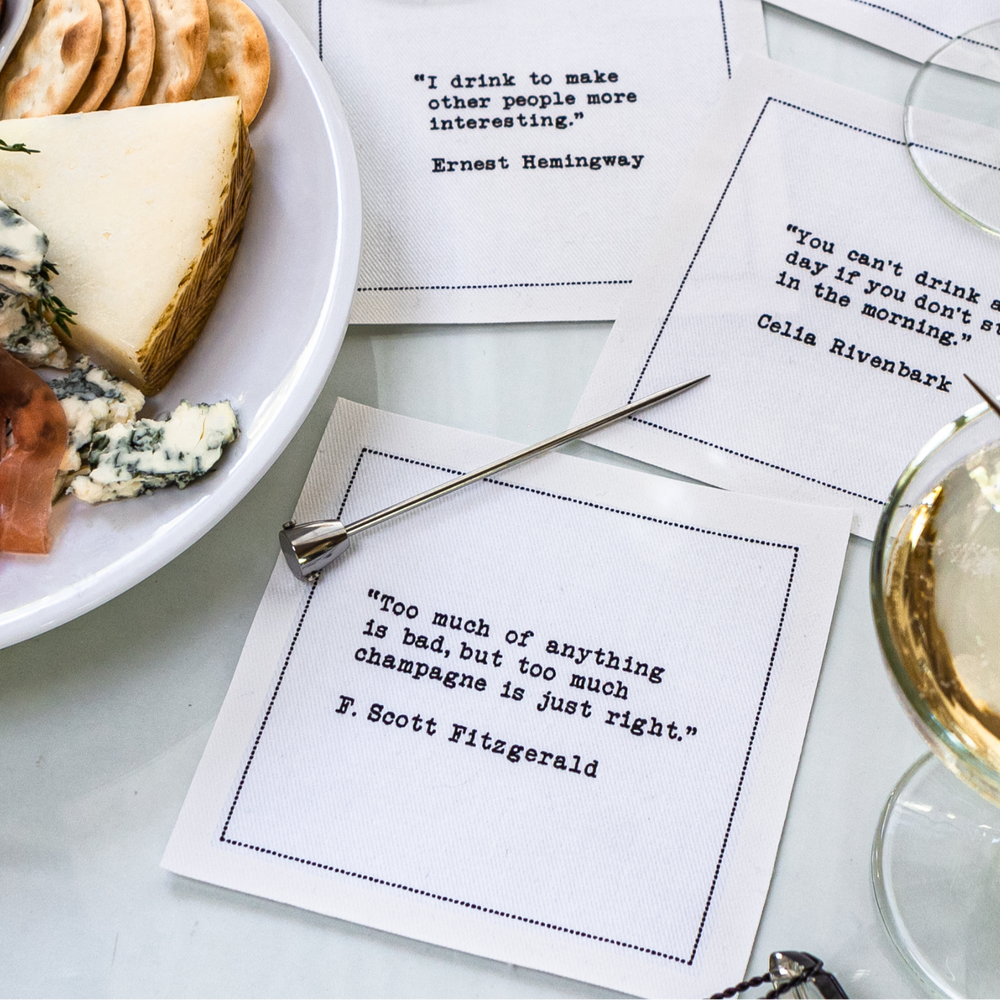 “I drink to make
other people more
interesting.”
Ernest Hemingway
“You can't drink
day if you don't
in the morning.”
Celia Rivenbark
“Too much of anything
is bad, but too much
champagne is just right.”
F. Scott Fitzgerald